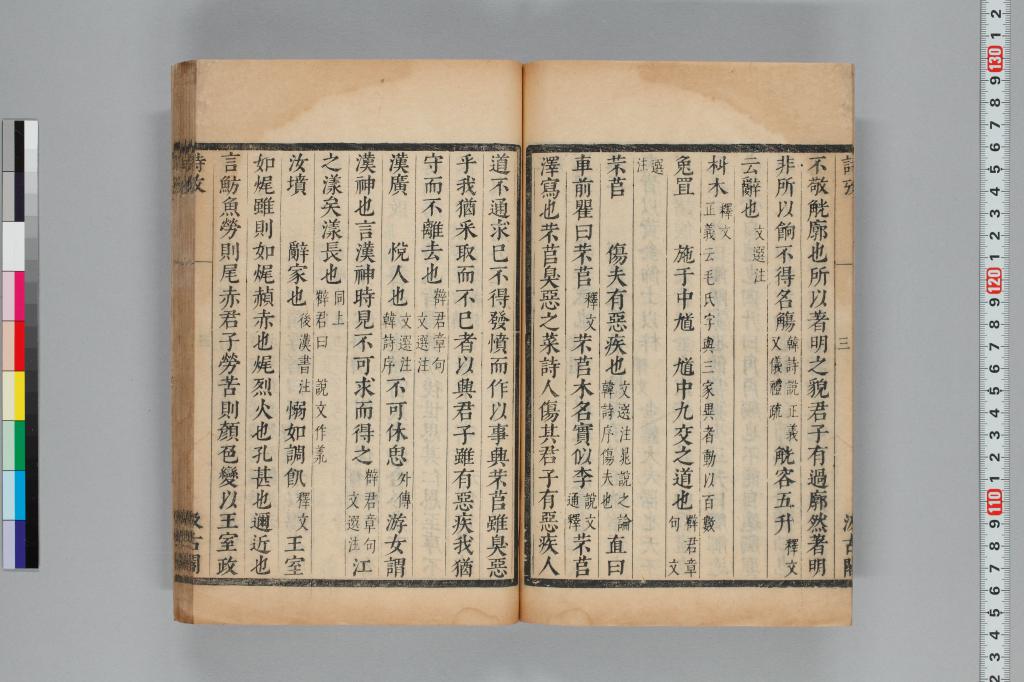 詩攷
三
汲古閣
不敬觥廓也所以著明之貌君子有過廓然著明
非所以餉不得名觴韓詩説正義又儀禮疏 觥容五升釋文
云辭也文選注
朻木釋文正義云毛氏字與三家異者動以百數
兔罝 施于中馗 馗中九交之道也薛君章句文
選注
芣苢 傷夫有惡疾也文選注晁説之論韓詩序傷夫也 直曰
車前瞿曰芣苢釋文 芣苢木名實似李説文通釋 芣苢
澤寫也芣苢臭惡之菜詩人傷其君子有惡疾人
道不通求已不得發憤而作以事興芣苢雖臭惡
乎我猶采取而不已者以興君子雖有惡疾我猶
守而不離去也薛君章句文選注
漢廣 悅人也文選注韓詩序 不可休思外傳 游女謂
漢神也言漢神時見不可求而得之薛君章句文選注 江
之漾矣漾長也同上薛君曰 説文作羕
汝墳 辭家也後漢書注 惄如調飢釋文 王室
如烜雖則如烜赬赤也烜烈火也孔甚也邇近也
言魴魚勞則尾赤君子勞苦則顏色變以王室政
詩攷
汲古閣